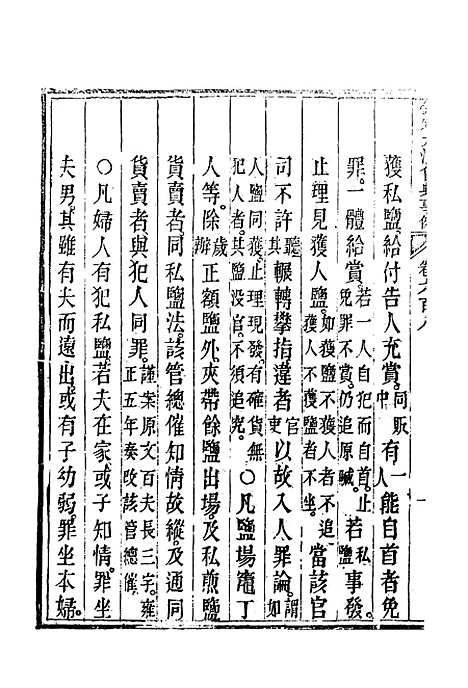 欽定大清會典事例 卷六百八 一
獲私鹽。給付告人充賞。同販中有一人能自首者免
罪。一體給賞。若一人自犯而自首。止免罪不賞。仍追原贓。若私鹽事發。
止理見獲人鹽。如獲鹽不獲人者不追。獲人不獲鹽者不坐。當該官
司不許聽其輾轉攀指。違者官吏以故入人罪論。謂如
人鹽同獲。止理現發。有確貨無犯人者。其鹽沒官。不須追究。〇凡鹽場竈丁
人等。除歲辦正額鹽外。夾帶餘鹽出場。及私煎鹽
貨賣者。同私鹽法。該管總催知情故縱。及通同
貨賣者。與犯人同罪。謹案原文百夫長三字。雍正五年奏改該管總催。
〇凡婦人有犯私鹽。若夫在家。或子知情。罪坐
夫男。其雖有夫而遠出。或有子幼弱。罪坐本婦。